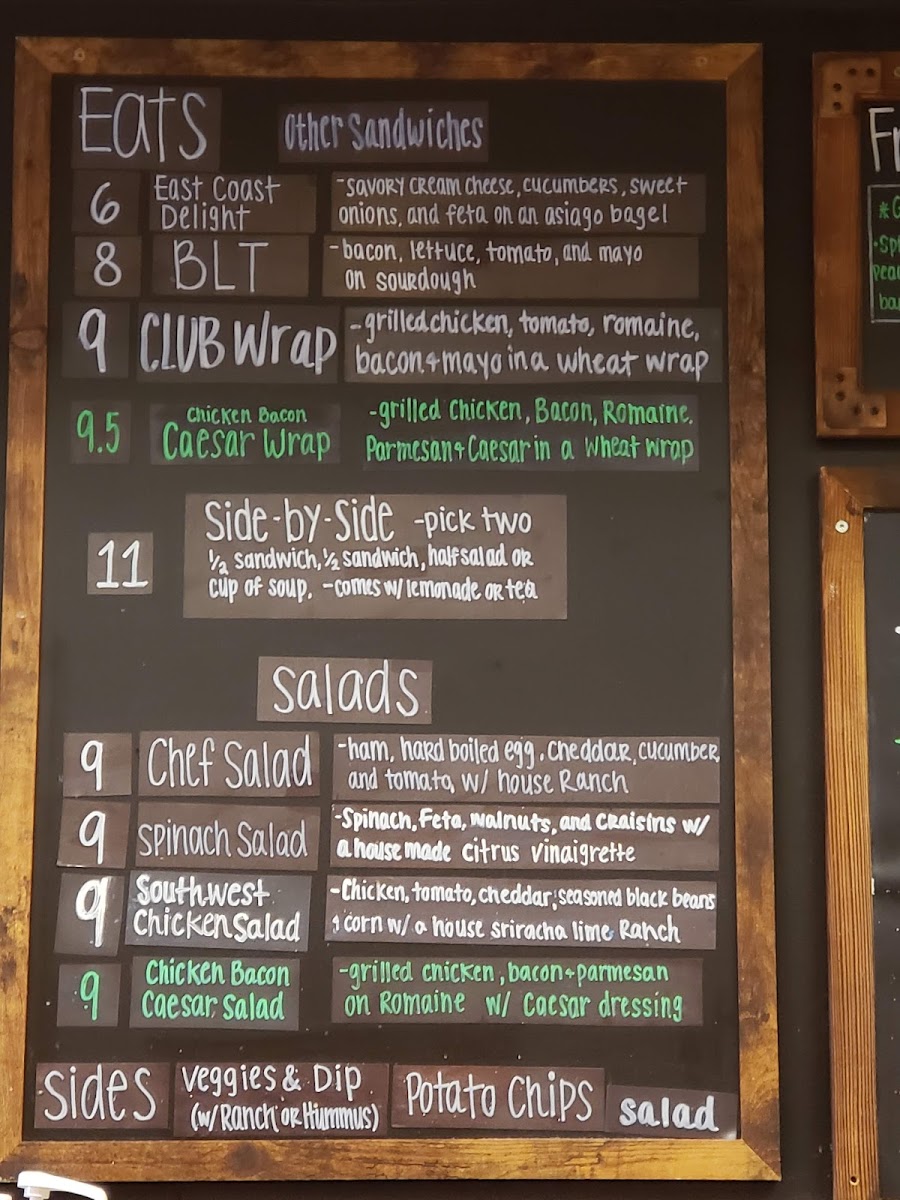 Eats
Other Sandwiches
6 East Coast Delight -Savory cream cheese, cucumbers, sweet
onions, and feta on an asiago bagel
8 BLT -bacon, lettuce, tomato, and mayo
on sourdough
9 CLUB Wrap -grilled chicken, tomato, romaine,
bacon + mayo in a wheat wrap
9.5 Chicken Bacon Caesar Wrap -grilled Chicken, Bacon, Romaine,
Parmesan + Caesar in a wheat wrap
Side-by-Side -pick two
11 1/2 sandwich, 1/2 sandwich, half salad or
cup of soup. -comes w/ lemonade or tea
Salads
9 Chef Salad -ham, hard boiled egg, cheddar, cucumber,
and tomato, w/ house Ranch
9 Spinach Salad -Spinach, Feta, walnuts, and craisins w/
a house made citrus vinaigrette
9 Southwest Chicken Salad -Chicken, tomato, cheddar, seasoned black beans
+ corn w/ a house sriracha lime Ranch
9 Chicken Bacon Caesar Salad -grilled chicken, bacon + parmesan
on Romaine w/ Caesar dressing
Sides Veggies & Dip Potato Chips salad
(w/ Ranch or Hummus)